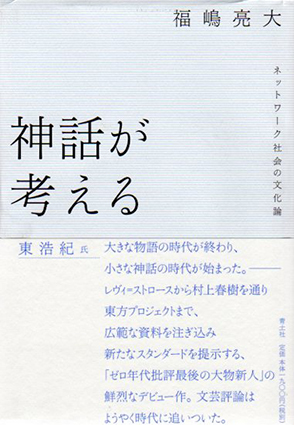 福嶋亮大
ネットワーク社会の文化論
神話が
考える
東浩紀氏
大きな物語の時代が終わり、
小さな神話の時代が始まった。――
レヴィ=ストロースから村上春樹を通り
東方プロジェクトまで、
広範な資料を注ぎ込み
新たなスタンダードを提示する、
「ゼロ年代批評最後の大物新人」の
鮮烈なデビュー作。文芸評論は
ようやく時代に追いついた。
青土社
定価本体一九〇〇円(税別)